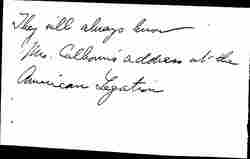 They will always know
Mrs. Calhoun's address at the
American Legation